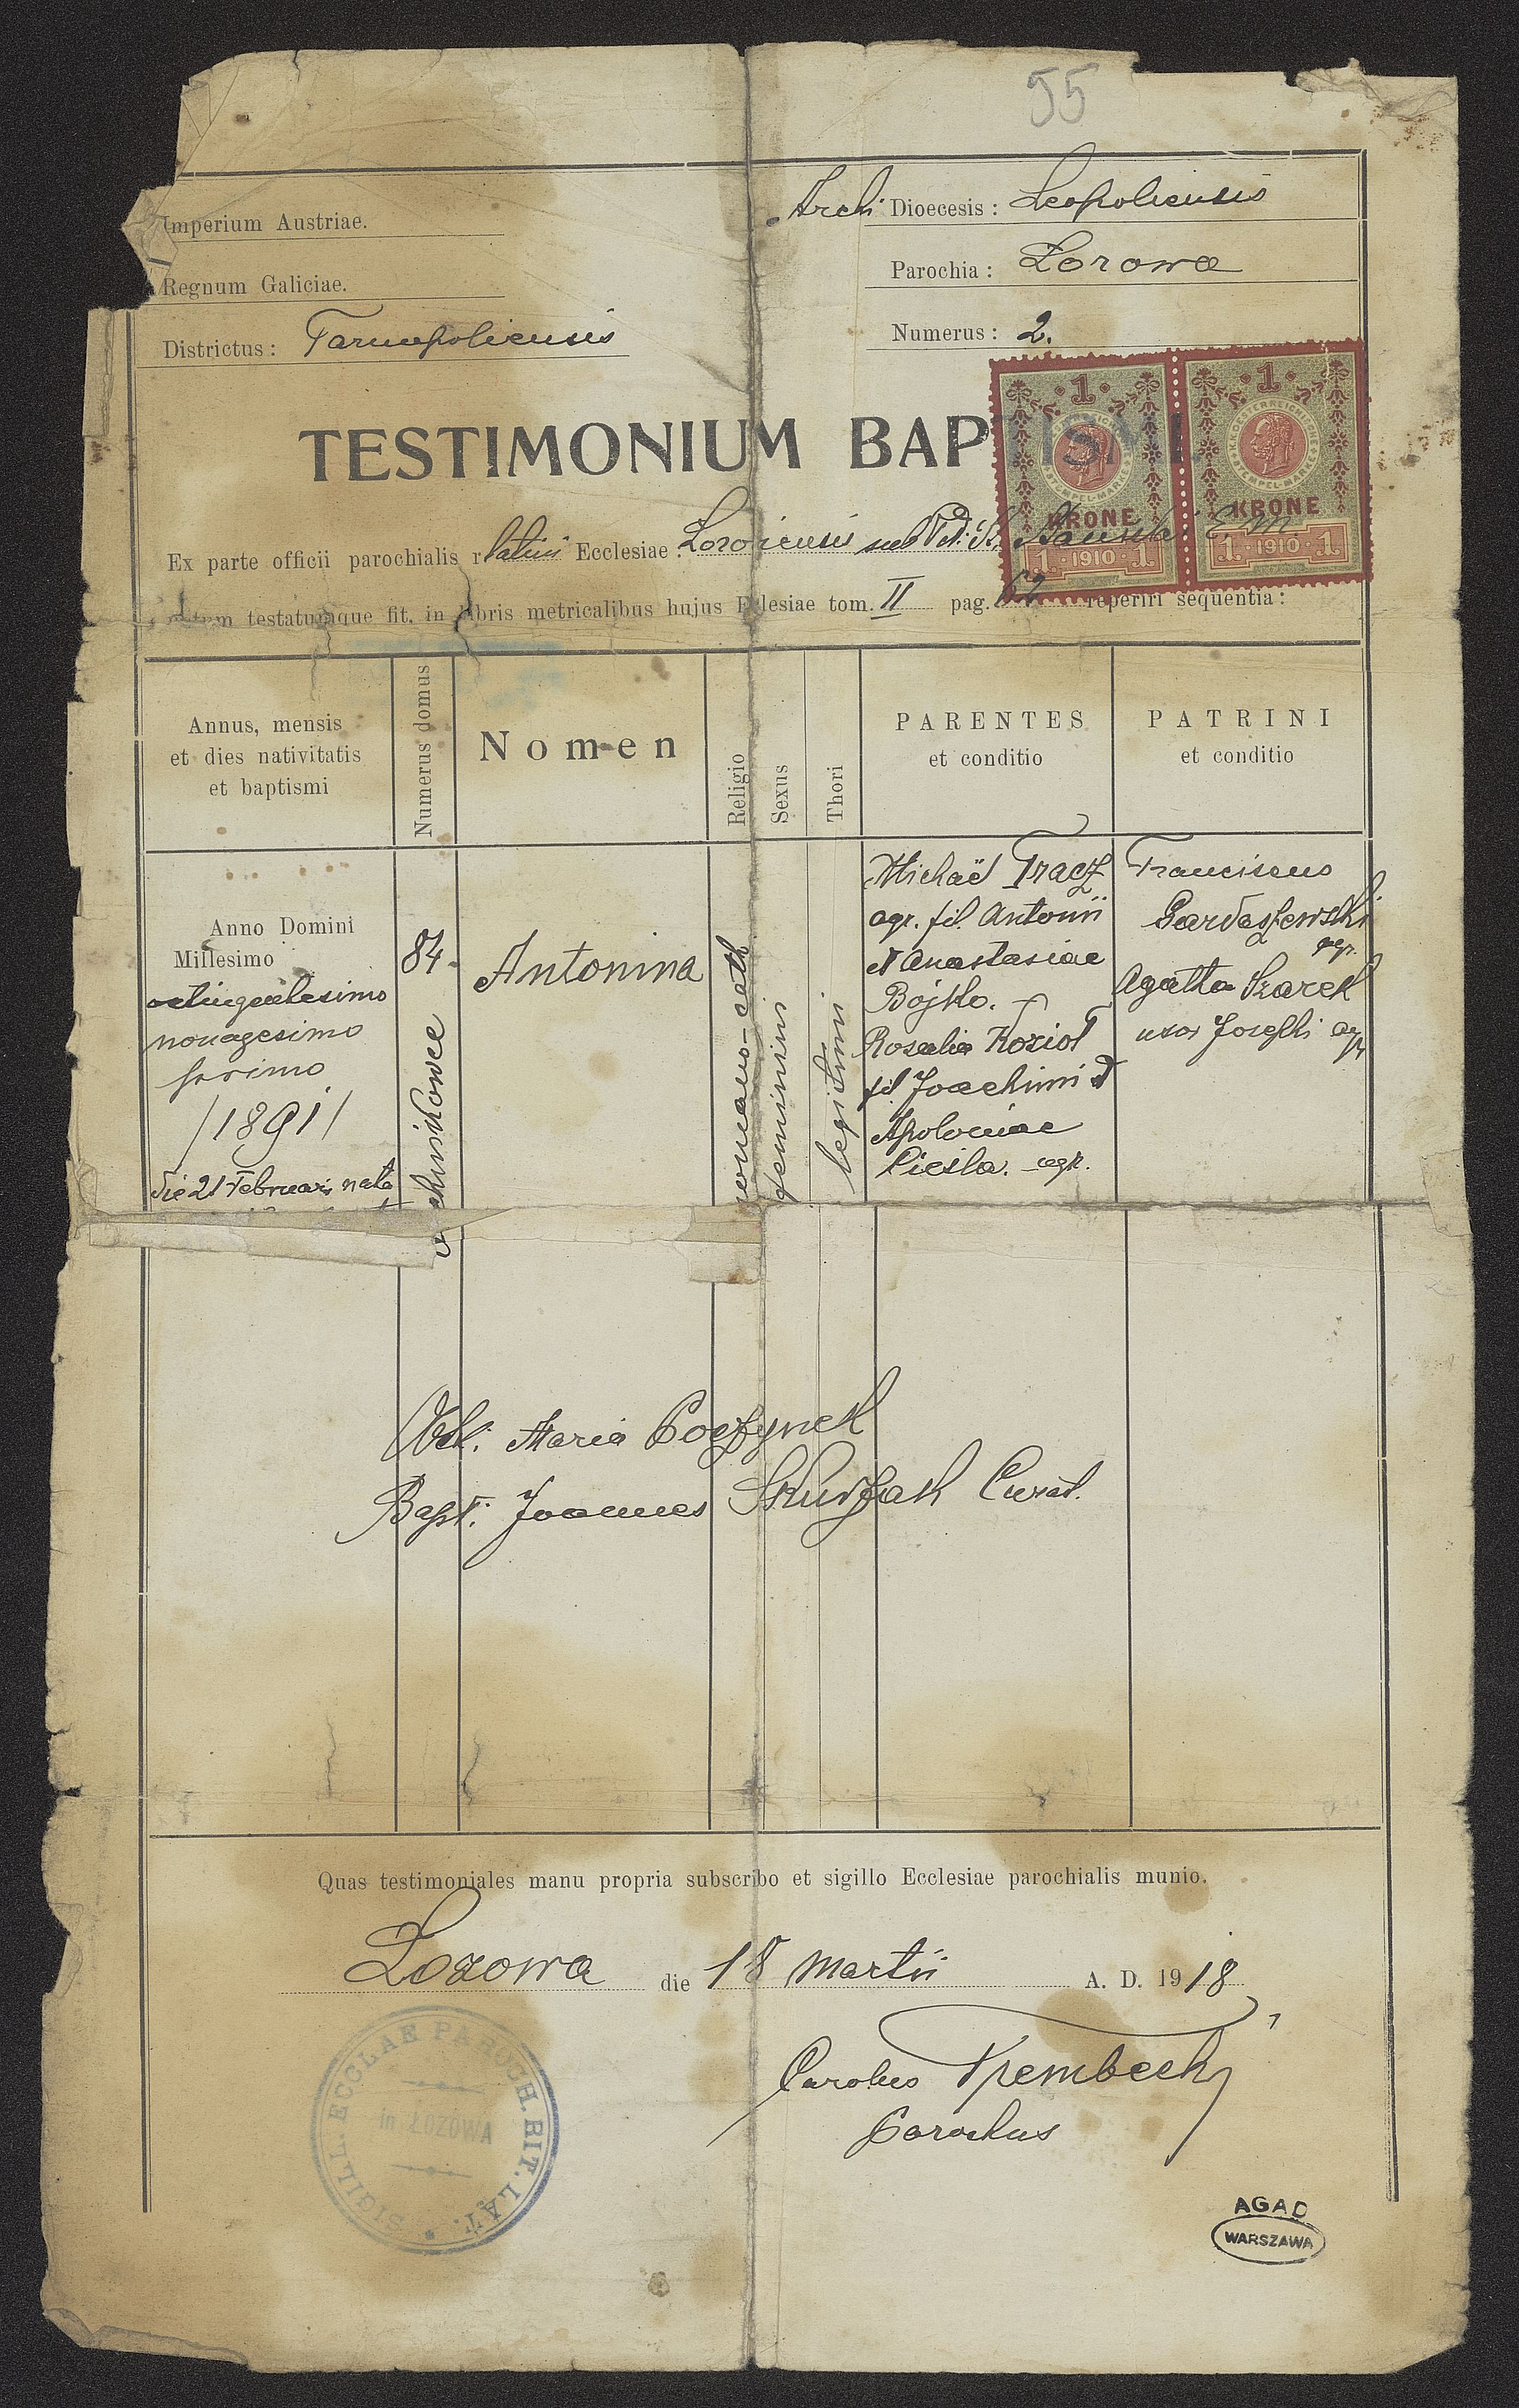 55
Imperium Austriae.
Archi Dioecesis: Leopoliensis
Regnum Galiciae.
Parochia: Łozowa
Districtus: Tarnopoliensis
Numerus: 2.
TESTIMONIUM BAPTISMI
1 1
KRONE KRONE
1 1910 1 1 1910 1
Ex parte officii parochialis r. latini Ecclesiae
testatumque fit, in libris metricalibus hujus Ecclesiae tom. II pag. 62 reperiri sequentia:
Annus, mensis
et dies nativitatis
et baptismi
Numerus domus
Nomen
Religio
Sexus
Thori
PARENTES
et conditio
PATRINI
et conditio
Anno Domini
Millesimo
octingentesimo
nonagesimo
primo
/1891/
die 21 Februari nata
84.
Antonina
romano-cath
feminini
legitimi
Michaël Tracz
agr. fil. Antonii
et Anastasiae
Bojko.
Rosalia Kozioł
fil Joachimi et
Apoloniae
Cieśla. agr.
Franciscus
Gardaszewski
agr.
Agatha Szarek
uxor Josephi agr
Obst. Maria Poczynek
Bapt. Joannes Skurzak Curat.
Quas testimoniales manu propria subscribo et sigillo Ecclesiae parochialis munio.
Łozowa die 18 Martii A. D. 1918
Carolus Trembecky
Parochus
SIGILL. ECCLAE PAROCH. RIT. LAT.
in ŁOZOWA
AGAD
WARSZAWA